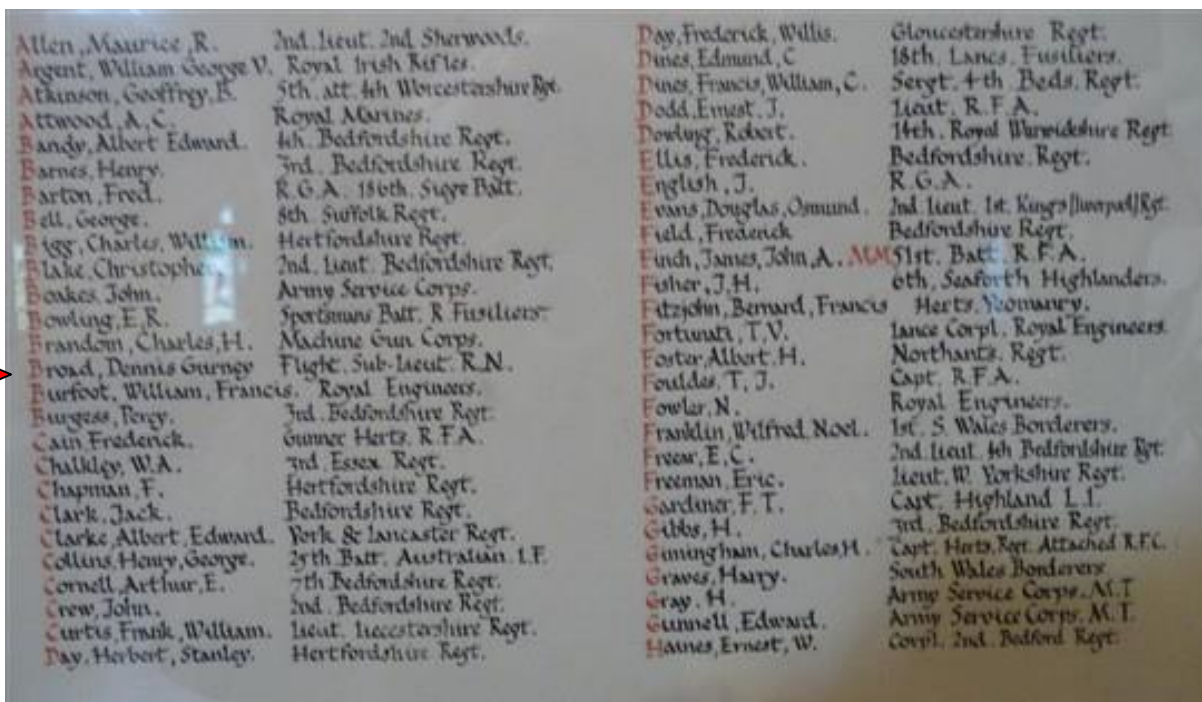 Allen, Maurice, R. 2nd. Lieut. 2nd. Sherwoods.
Argent, William George V. Royal Irish Rifles.
Atkinson, Geoffrey, B. 5th. att. 4th Worcestershire Rgt.
Attwood, A. C. Royal Marines.
Bandy, Albert Edward. 4th. Bedfordshire Regt.
Barnes, Henry. 3rd. Bedfordshire Regt.
Barton, Fred. R.G.A. 186th. Siege Batt.
Bell, George. 8th. Suffolk Regt.
Bigg, Charles, William. Hertfordshire Regt.
Blake, Christopher. 2nd. Lieut. Bedfordshire Regt.
Boakes, John. Army Service Corps.
Bowling, E.R. Sportsmans Batt. R Fusiliers.
Brandom, Charles, H. Machine Gun Corps.
Broad, Dennis Gurney Flight. Sub-Lieut. R.N.
Burfoot, William, Francis. Royal Engineers.
Burgess, Percy. 3rd. Bedfordshire Regt.
Cain Frederick. Gunner Herts. R.F.A.
Chalkley, W.A. 3rd Essex Regt.
Chapman, F. Hertfordshire Regt.
Clark, Jack. Bedfordshire Regt.
Clarke, Albert, Edward. York & Lancaster Regt.
Collins, Henry, George. 25th Batt. Australian I.F.
Cornell, Arthur, E. 7th Bedfordshire Regt.
Crew, John. 2nd. Bedfordshire Regt.
Curtis, Frank, William. Lieut. Leicestershire Regt.
Day, Herbert, Stanley. Hertfordshire Regt.
Day, Frederick, Willis. Gloucestershire Regt.
Dines, Edmund, C 18th. Lancs. Fusiliers.
Dines, Francis, William, C. Sergt. 4th Beds. Regt.
Dodd, Ernest, J. Lieut. R.F.A.
Dowling, Robert. 14th. Royal Warwickshire Regt.
Ellis, Frederick. Bedfordshire. Regt.
English, J. R.G.A.
Evans, Douglas, Osmund. 2nd. Lieut. 1st. King's [Liverpool] Rgt.
Field, Frederick Bedfordshire Regt.
Finch, James, John, A. MM 51st. Batt. R.F.A.
Fisher, J.H. 6th. Seaforth Highlanders.
Fitzjohn, Bernard, Francis Herts. Yeomanry.
Fortunati, T.V. Lance Corpl. Royal Engineers.
Foster, Albert, H. Northants. Regt.
Fouldes, T. J. Capt. R.F.A.
Fowler, N. Royal Engineers.
Franklin, Wilfred, Noel. 1st. S. Wales Borderers.
Freear, E, C. 2nd. Lieut. 4th Bedfordshire Rgt.
Freeman, Eric. Lieut. W. Yorkshire Regt.
Gardiner, F. T. Capt. Highland L.I.
Gibbs, H. 3rd. Bedfordshire Regt.
Gimingham, Charles, H. Capt. Herts, Regt. Attached R.F.C.
Graves, Harry. South Wales Borderers
Gray. H. Army Service Corps. M.T
Gunnell, Edward. Army Service Corps. M.T.
Haines, Ernest, W. Corpl. 2nd. Bedford Regt.